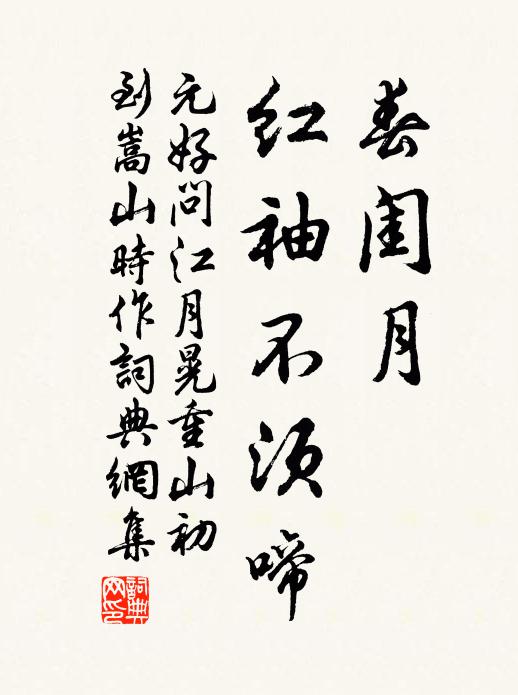 春闺月
红袖不须啼
元好问江月晃重山初
到嵩山時作詞典網集
詞典网印